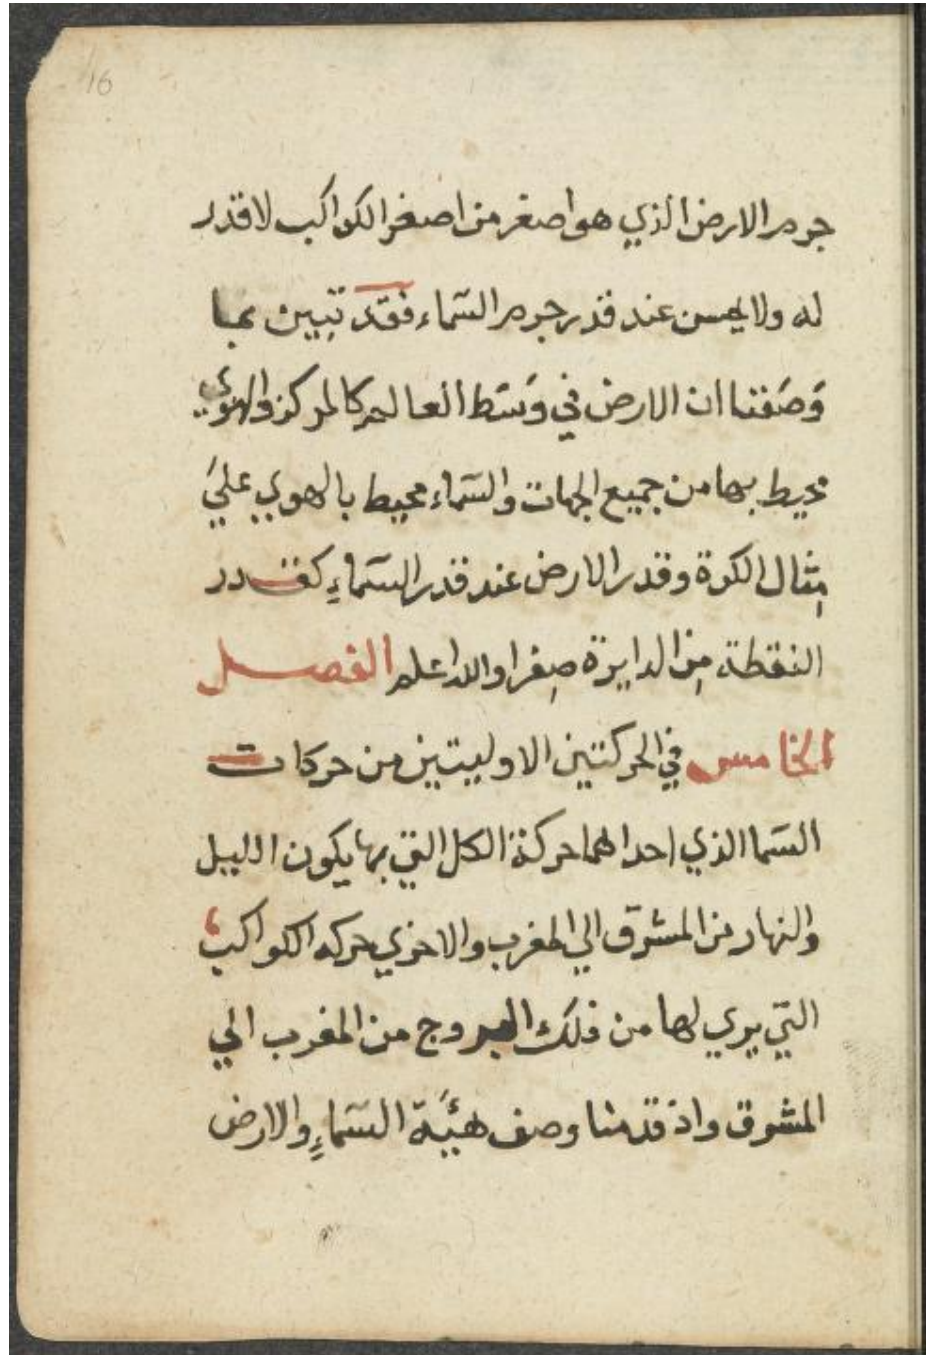 16
جرم الارض الذي هو اصغر من اصغر الكواكب لا قدر
له ولا يحسن عند قدر جرم السّماء فقد تبين بما
وَصَفنا ان الارض في وَسَط العالم كالمركز والهوي
محيط بها من جميع الجهات والسّماء محيط بالهوي عليَ
مِثال الكرة وقدر الارض عند قدر السّماءِ كقدر
النقطة مِن الدايرة صِغرا والله اعلم الفصل
الخامس في الحركتين الاوليتين من حركات
السّما الذي احداهما حركة الكل التي بها يكون الليل
والنهار من المشرق الي المغرب والاخري حركه الكواكب
التي يري لها من فلك البروج من المغرب الي
المشرق واذ قدمنا وصف هيئَة السّماءِ والارض